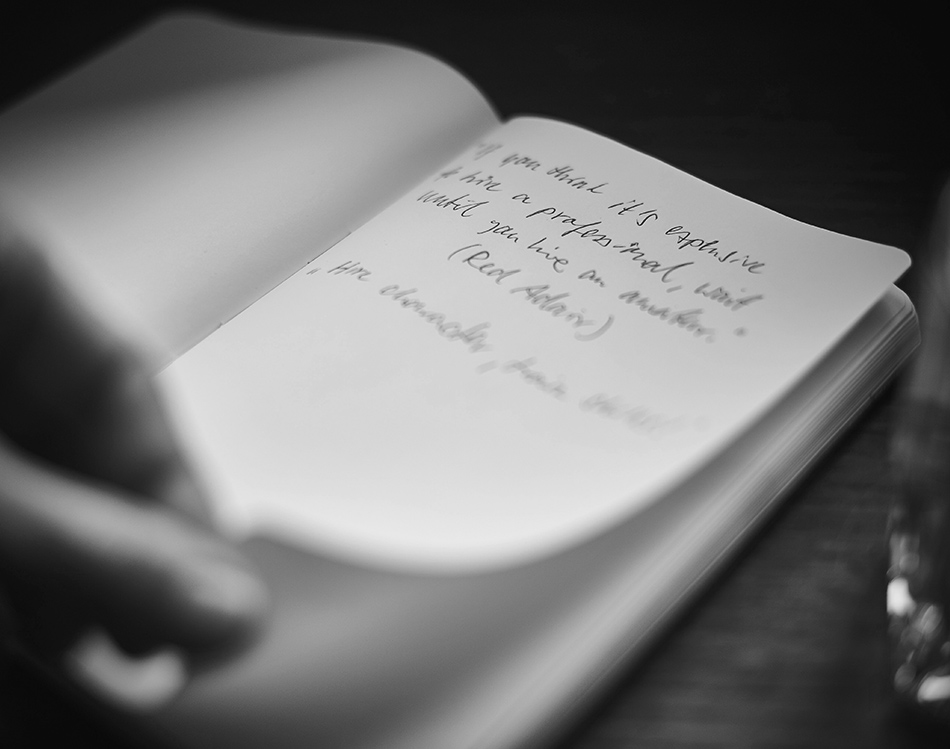 "If you think it's expensive
to hire a professional, wait
until you hire an amateur."
(Red Adair)
"Hire character, train skills"